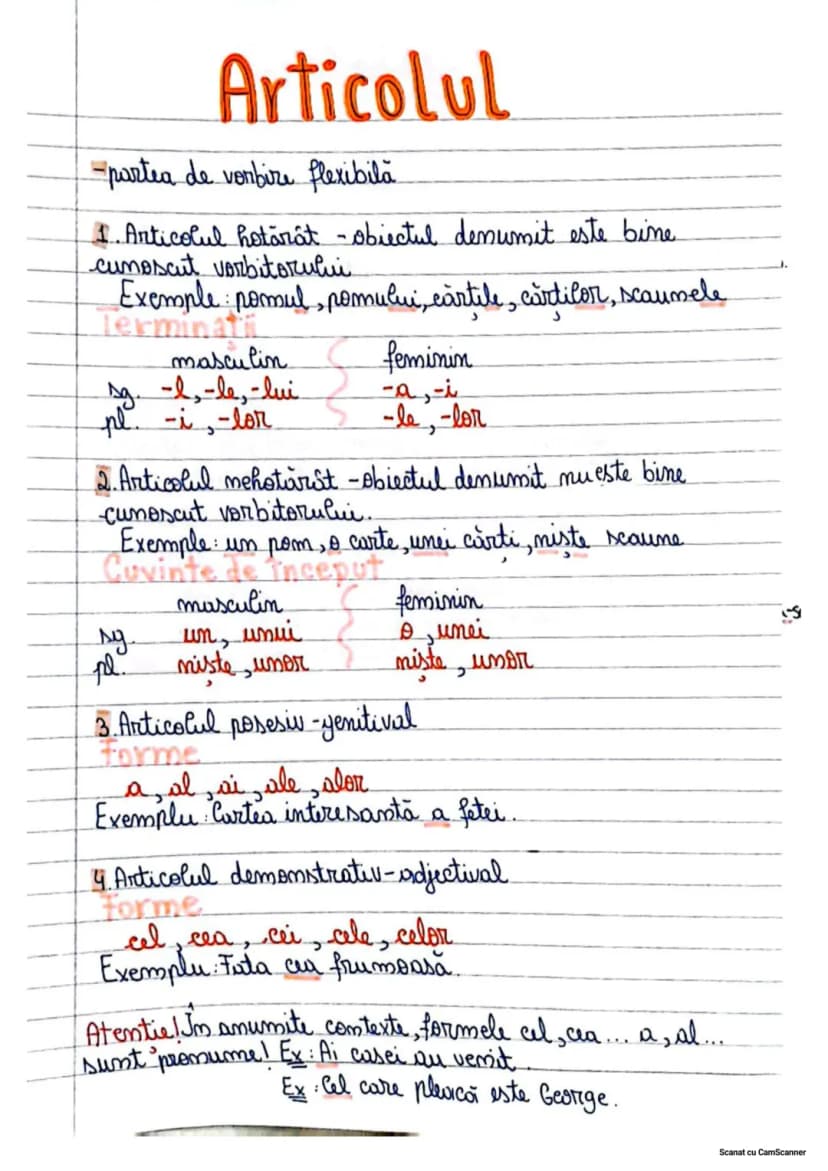 Articolul
-partea de vorbire flexibilă
1. Articolul hotărât - obiectul denumit este bine
cunoscut vorbitorului
Exemple: pomul, pomului, cărțile, cărților, scaunele
Terminații
masculin feminin
sg. -l, -le, -lui -a, -i
pl. -i, -lor -le, -lor
2. Articolul nehotărât - obiectul denumit nu este bine
cunoscut vorbitorului.
Exemple: un pom, o carte, unei cărți, niște scaune
Cuvinte de început
masculin feminin
sg. un, unui o, unei
pl. niște, unor niște, unor
3. Articolul posesiv-genitival
Forme
a, al, ai, ale, alor
Exemplu: Cartea interesantă a fetei.
4. Articolul demonstrativ-adjectival
Forme
cel, cea, cei, cele, celor
Exemplu: Fata cea frumoasă
Atenție! În anumite contexte, formele cel, cea... a, al...
sunt pronume! Ex: Ai casei au venit.
Ex: Cel care pleacă este George.
Scanat cu CamScanner